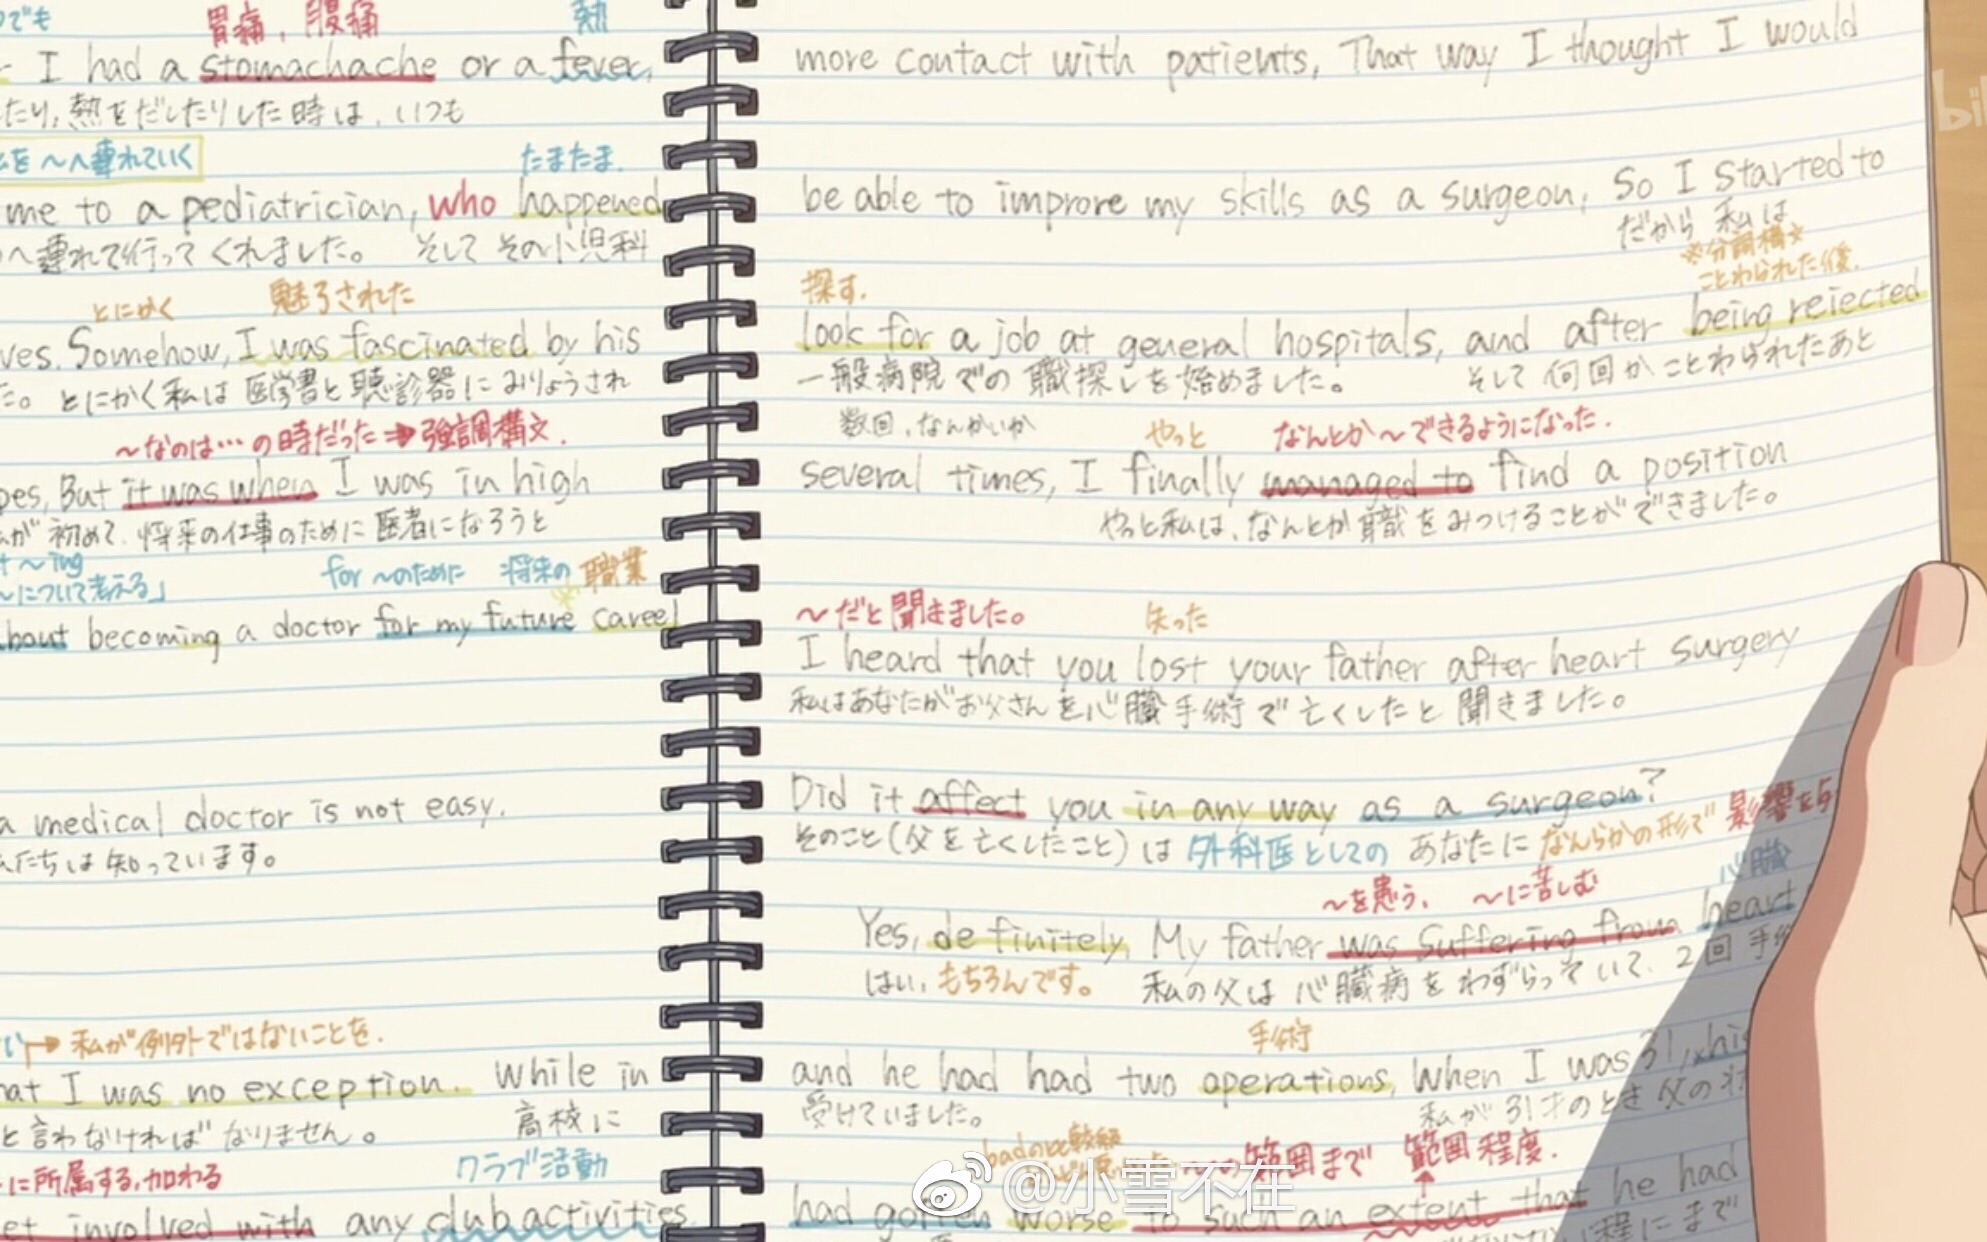 でも 胃痛, 腹痛 熱
I had a stomachache or a fever,
たり, 熱をだしたりした時は, いつも
を 〜へ連れていく たまたま.
me to a pediatrician, who happened
へ連れて行ってくれました。 そして その小児科
とにかく 魅了された
ves. Somehow, I was fascinated by his
た。とにかく私は 医学書と聴診器に みりょうされ
〜なのは…の時だった → 強調構文.
pes, But it was when I was in high
が 初めて、将来の仕事のために 医者になろうと
〜ing
〜について考える」 for 〜のために 将来の 職業
about becoming a doctor for my future career
a medical doctor is not easy.
たちは 知っています。
い → 私が例外ではないことを.
hat I was no exception. While in
と言わなければなりません。 高校に
に所属する, 加わる クラブ活動
et involved with any club activities
more contact with patients, That way I thought I would
be able to improve my skills as a surgeon, So I started to
だから 私は
※分詞構文
探す. ことわられた後.
look for a job at general hospitals, and after being rejected
一般病院での職探しを始めました。 そして 何回か ことわられたあと
数回, なんかいか やっと なんとか〜できるようになった.
several times, I finally managed to find a position
やっと私は、なんとか職をみつけることができました。
〜だと聞きました。 失った
I heard that you lost your father after heart surgery
私はあなたがお父さんを心臓手術で亡くしたと聞きました。
Did it affect you in any way as a surgeon?
そのこと(父を亡くしたこと)は 外科医としての あなたに なんらかの形で 影響を与
〜を患う, 〜に苦しむ 心臓
Yes, definitely, My father was suffering from heart
はい, もちろんです。 私の父は 心臓病をわずらっていて、2回 手術
手術
and he had had two operations, When I was 31, his
受けていました。 私が31才のとき 父の
badの比較級 〜の範囲まで 範囲 程度.
had gotten worse to such an extent that he had
程にまで
@小雪不在
bil